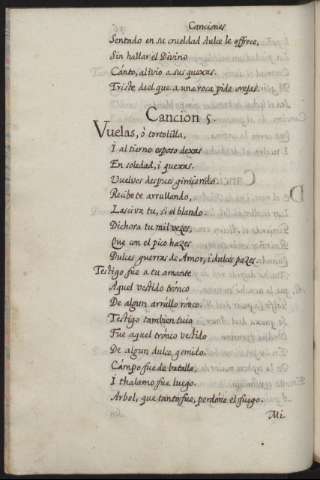 Canciones
Sentado en su crueldad dulce le offrece,
Sin hallar el Divino
Canto, alivio a sus quexas.
Triste del que a una roca pide orejas.
Cancion 5.
Vuelas, ô tortolilla,
I al tierno esposo dexas
En soledad, i quexas.
Vuelves despues gimiendo.
Recibete arrullando,
Lasciva tu, si el blando.
Dichosa tu mil vezes,
Que con el pico hazes
Dulces guerras de Amor, i dulces pazes.
Testigo fue a tu amante
Aquel vestido tronco
De algun arrullo ronco.
Testigo tambien tuio
Fue aquel tronco vestido
De algun dulce gemido.
Campo fue de batalla,
I thalamo fue luego.
Arbol, que tanto fue, perdone el fuego.
Mi